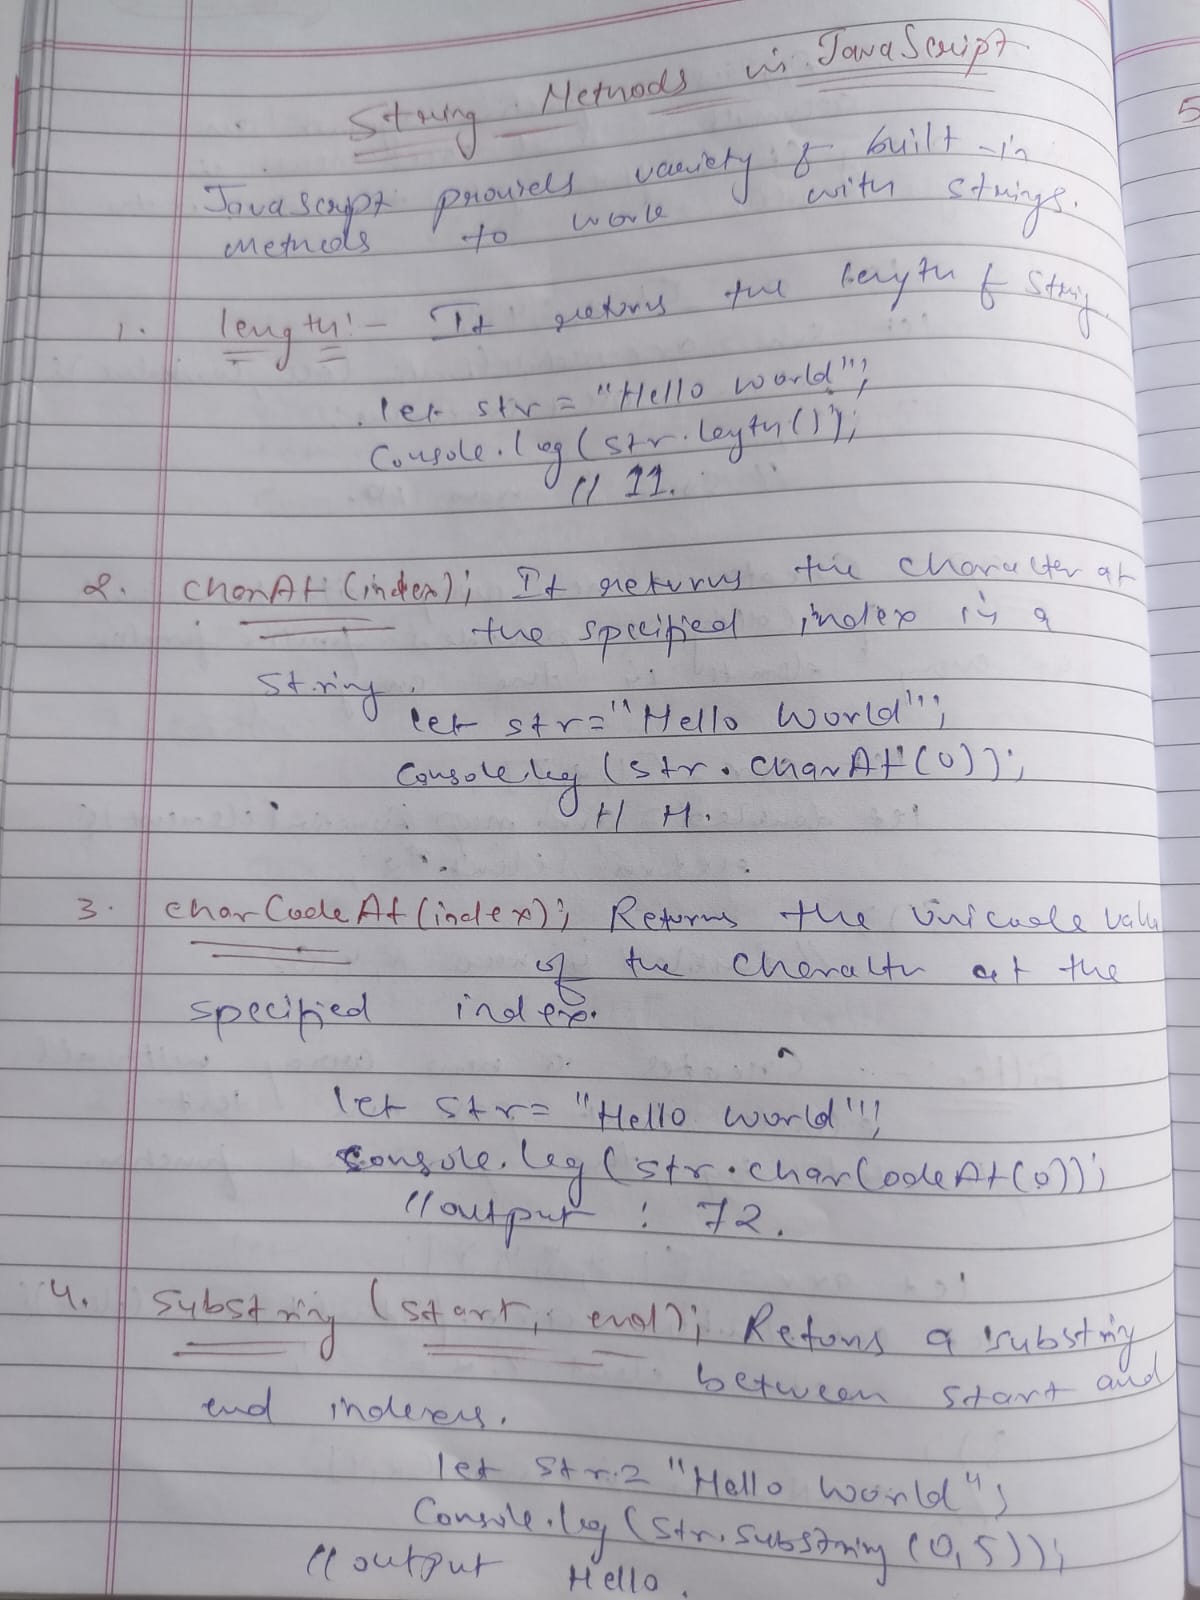 String Methods in JavaScript
JavaScript provides variety of built-in
methods to work with strings.
1. length:- It returns the length of string
let str = "Hello world";
Console.log(str.length());
// 11.
2. charAt (index); It returns the character at
the specified index in a
string.
let str = "Hello World";
Console.log (str.charAt(0));
// H.
3. charCodeAt (index); Returns the unicode value
of the character at the
specified index.
let str = "Hello world";
console.log (str.charCodeAt(0));
// output : 72.
4. substring (start, end); Retuns a substring
between start and
end indexes.
let str = "Hello World";
Console.log (str.substring (0,5));
// output Hello.
5